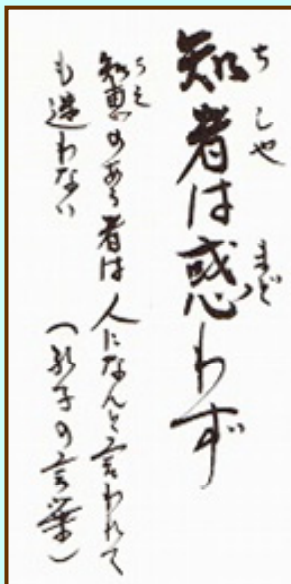 知者は惑わず
ちしや
まど
知恵のある者は人になんと言われて
ちえ
も迷わない
(孔子の言葉)